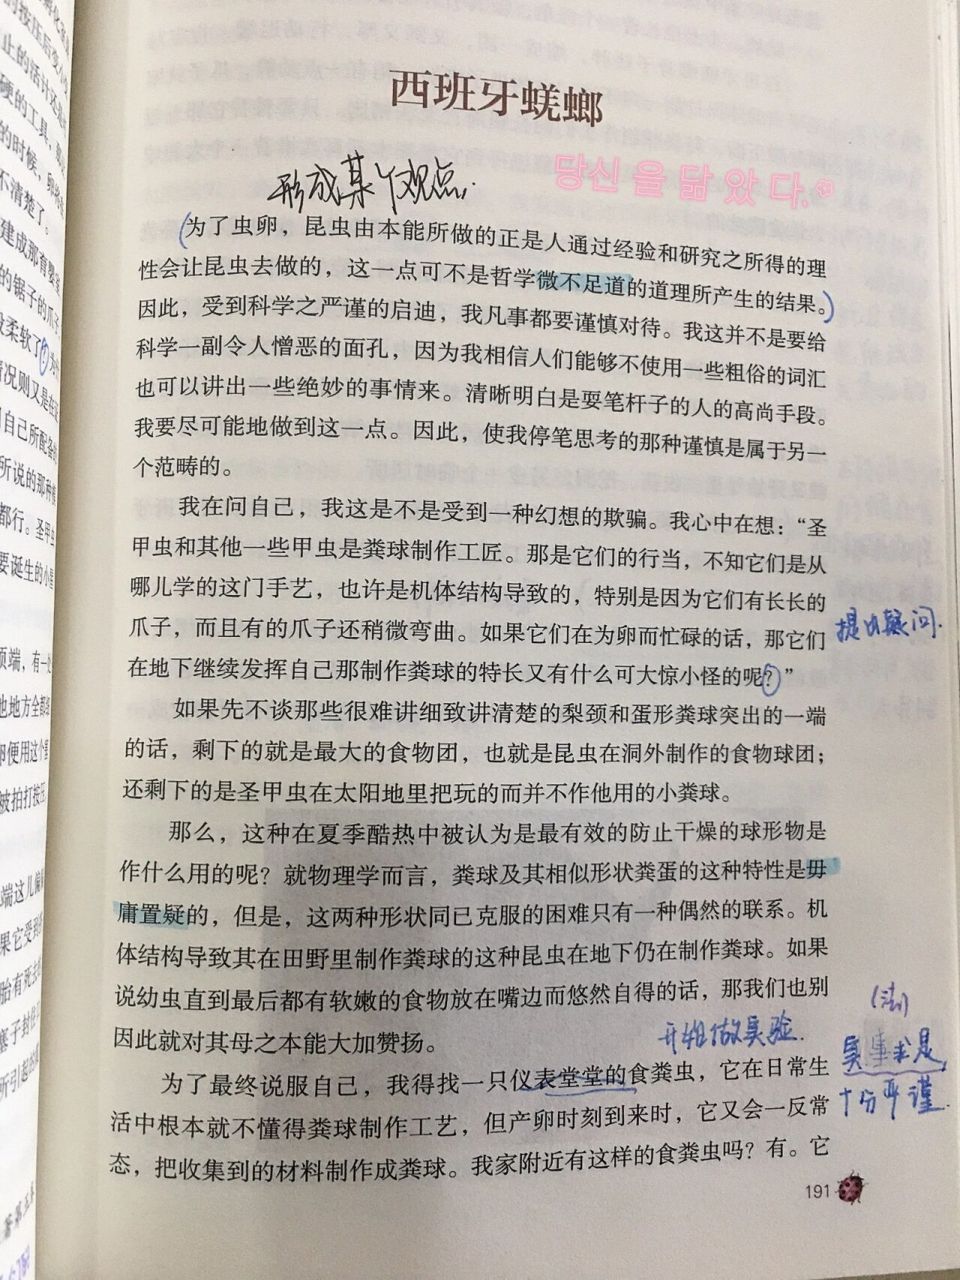 西班牙蜣螂
形成某个观点.
당신을 닮았다.
为了虫卵，昆虫由本能所做的正是人通过经验和研究之所得的理
性会让昆虫去做的，这一点可不是哲学微不足道的道理所产生的结果。
因此，受到科学之严谨的启迪，我凡事都要谨慎对待。我这并不是要给
科学一副令人憎恶的面孔，因为我相信人们能够不使用一些粗俗的词汇
也可以讲出一些绝妙的事情来。清晰明白是耍笔杆子的人的高尚手段。
我要尽可能地做到这一点。因此，使我停笔思考的那种谨慎是属于另一
个范畴的。
我在问自己，我这是不是受到一种幻想的欺骗。我心中在想：“圣
甲虫和其他一些甲虫是粪球制作工匠。那是它们的行当，不知它们是从
哪儿学的这门手艺，也许是机体结构导致的，特别是因为它们有长长的
爪子，而且有的爪子还稍微弯曲。如果它们在为卵而忙碌的话，那它们
提出疑问.
在地下继续发挥自己那制作粪球的特长又有什么可大惊小怪的呢？”
如果先不谈那些很难讲细致讲清楚的梨颈和蛋形粪球突出的一端
的话，剩下的就是最大的食物团，也就是昆虫在洞外制作的食物球团；
还剩下的是圣甲虫在太阳地里把玩的而并不作他用的小粪球。
那么，这种在夏季酷热中被认为是最有效的防止干燥的球形物是
作什么用的呢？就物理学而言，粪球及其相似形状粪蛋的这种特性是毋
庸置疑的，但是，这两种形状同已克服的困难只有一种偶然的联系。机
体结构导致其在田野里制作粪球的这种昆虫在地下仍在制作粪球。如果
说幼虫直到最后都有软嫩的食物放在嘴边而悠然自得的话，那我们也别
因此就对其母之本能大加赞扬。
开始做实验.
(法)
实事求是
十分严谨
为了最终说服自己，我得找一只仪表堂堂的食粪虫，它在日常生
活中根本就不懂得粪球制作工艺，但产卵时刻到来时，它又会一反常
态，把收集到的材料制作成粪球。我家附近有这样的食粪虫吗？有。它
191